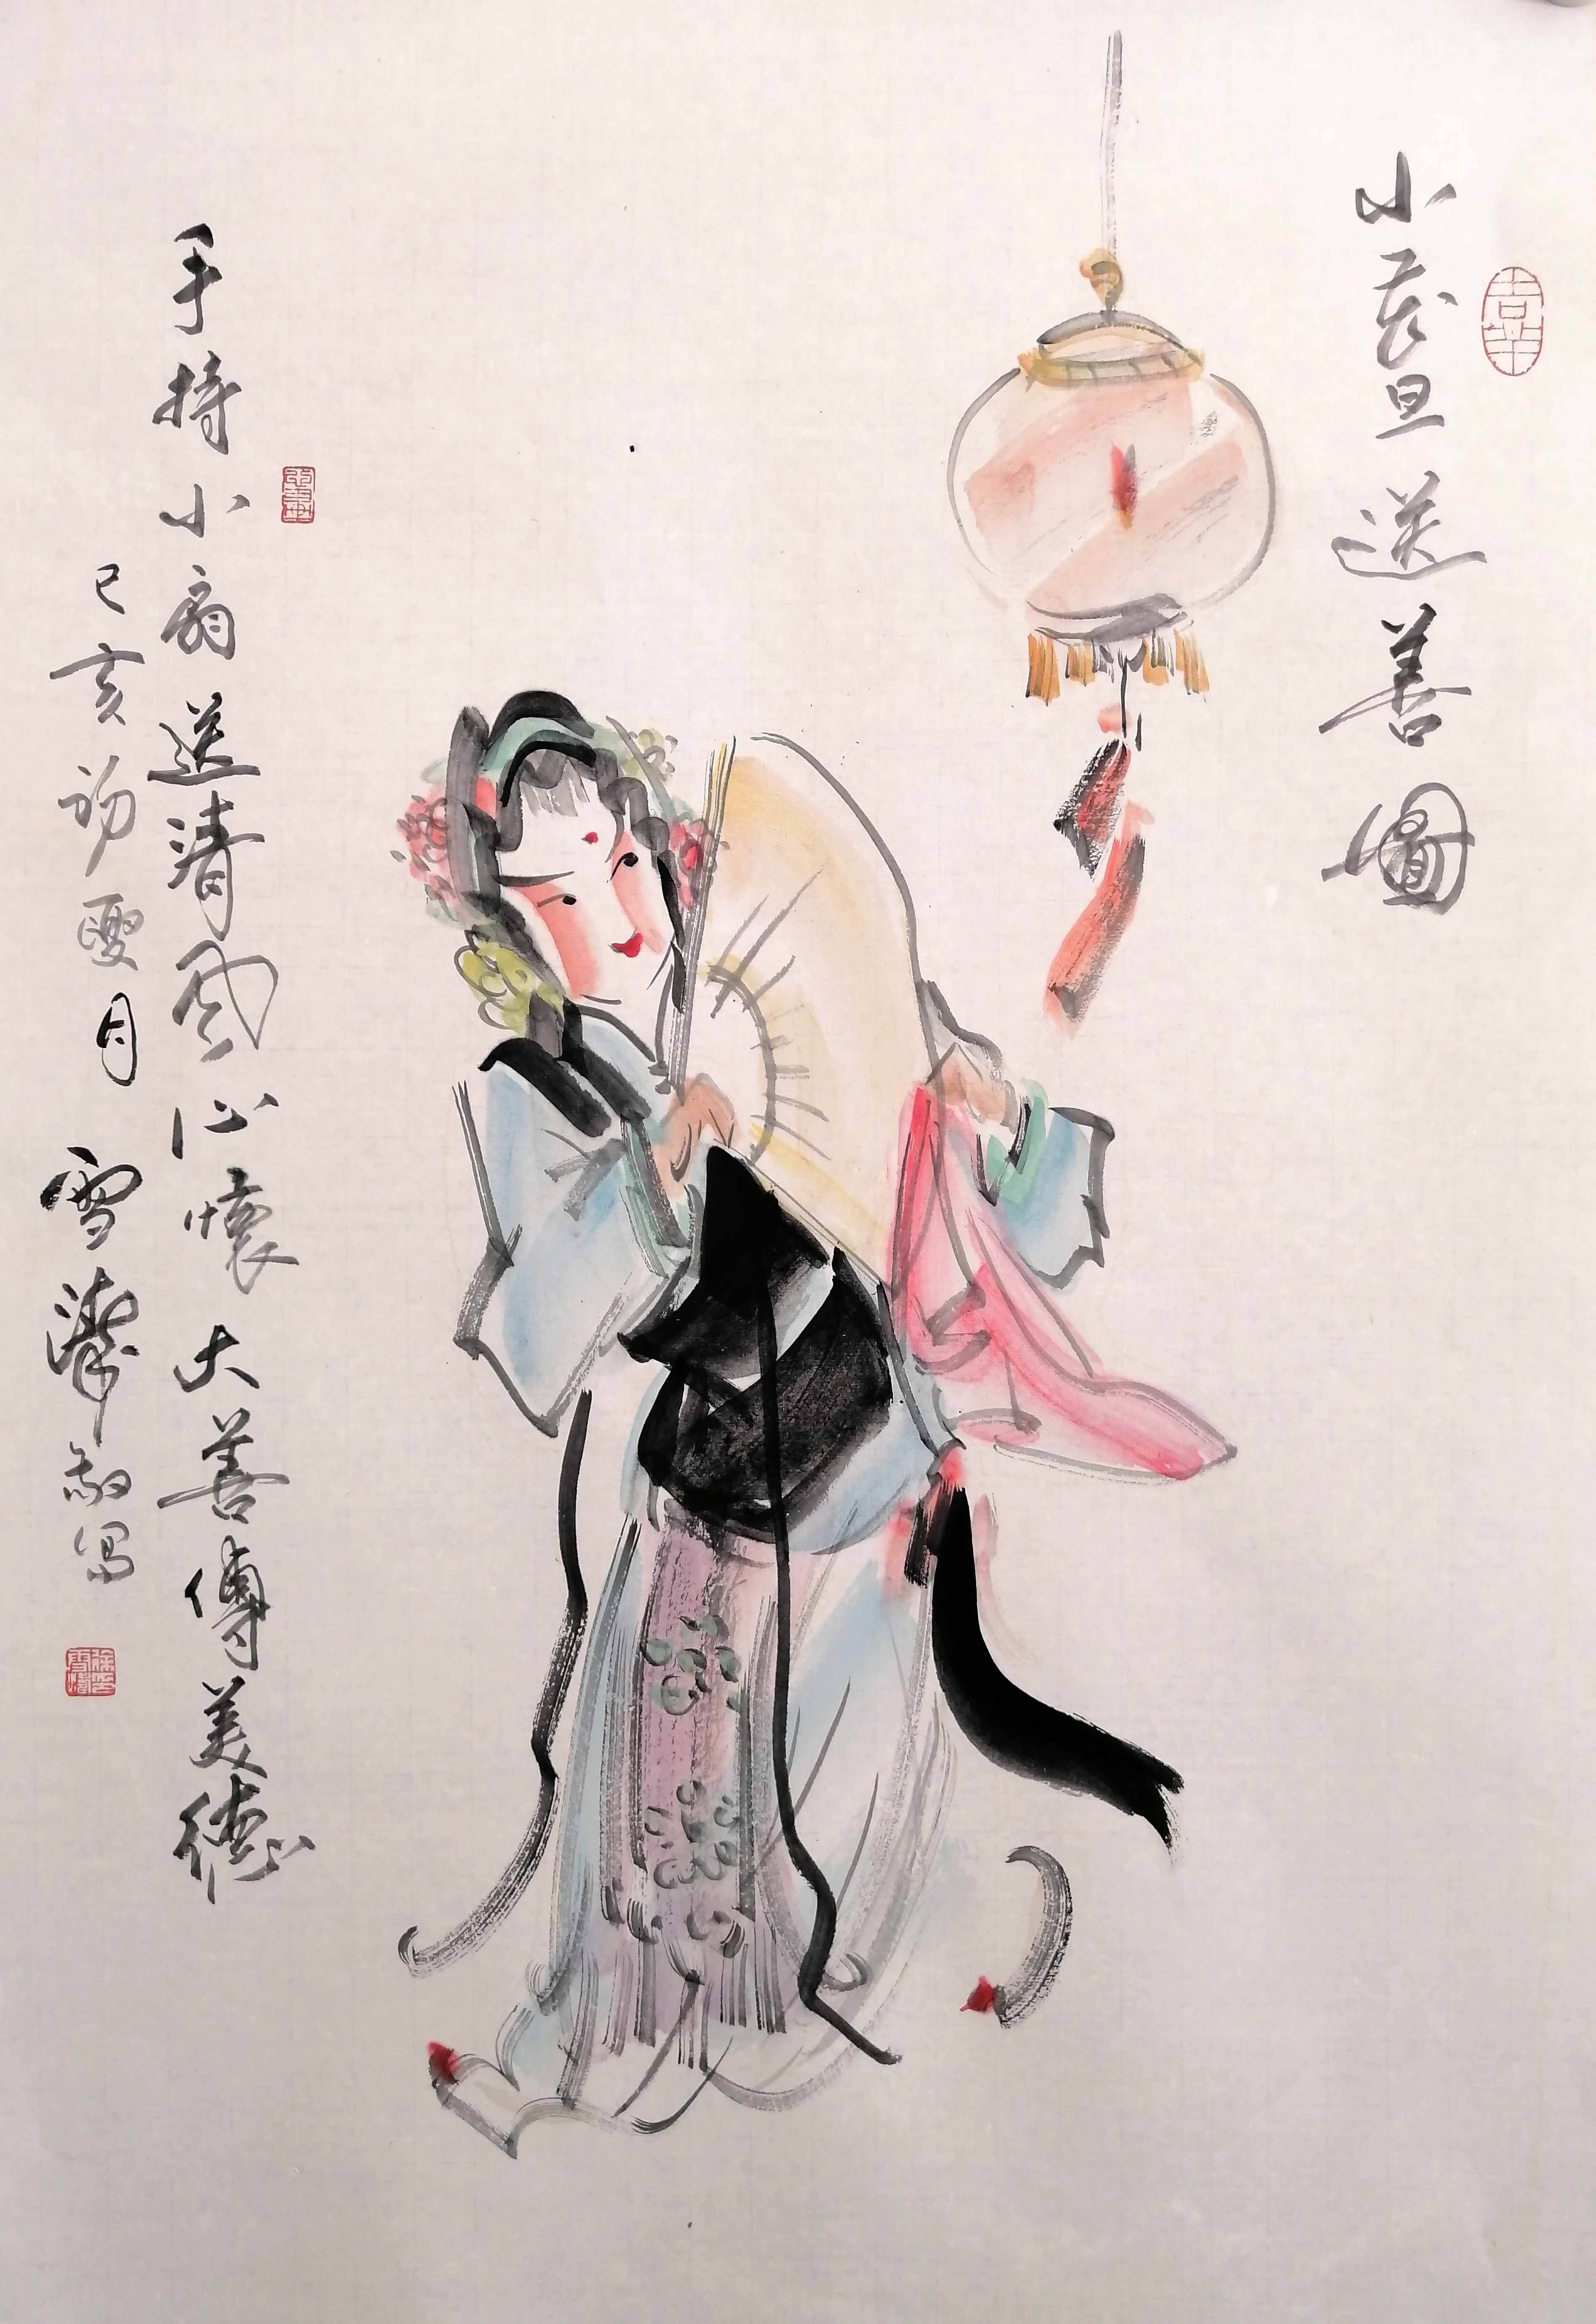 小花旦送善圖
手持小扇送清风心懷大善傳美德
己亥初夏月 雪濤敬写